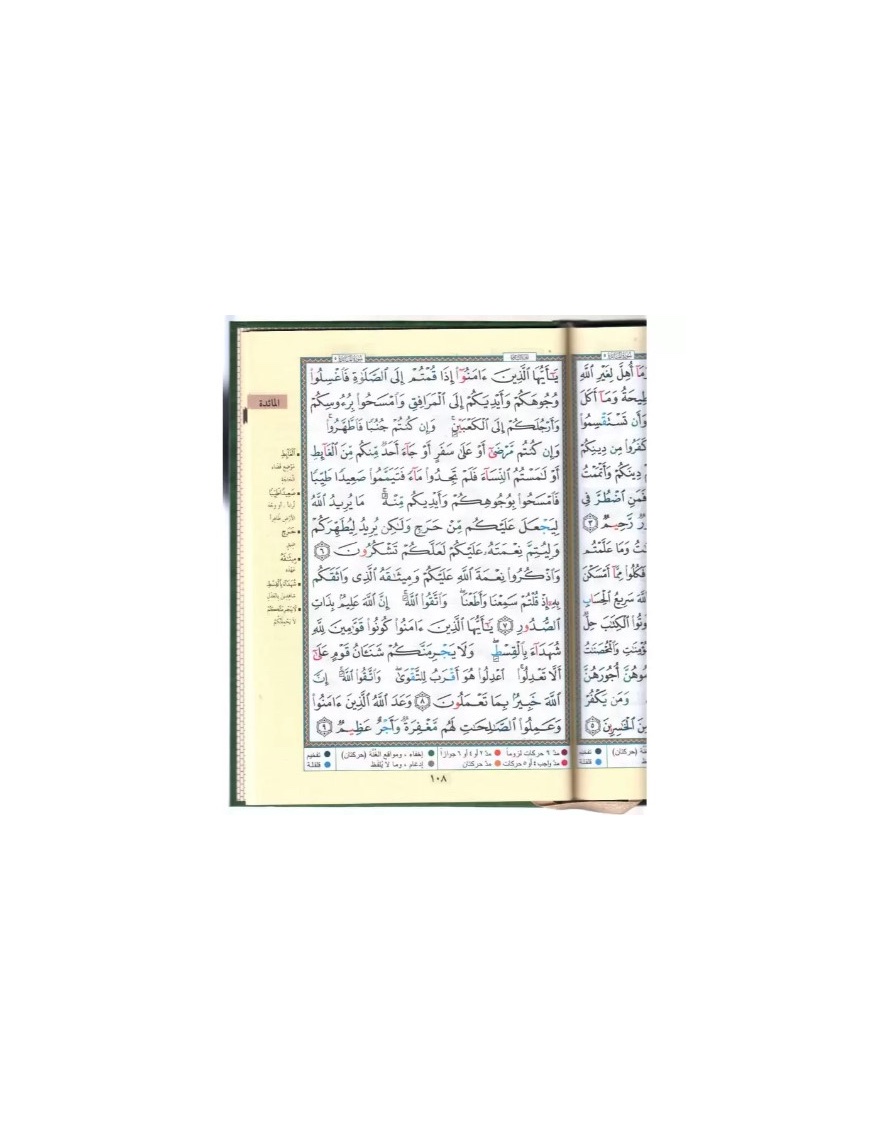 يَٰٓأَيُّهَا ٱلَّذِينَ ءَامَنُوٓاْ إِذَا قُمۡتُمۡ إِلَى ٱلصَّلَوٰةِ فَٱغۡسِلُواْ
وُجُوهَكُمۡ وَأَيۡدِيَكُمۡ إِلَى ٱلۡمَرَافِقِ وَٱمۡسَحُواْ بِرُءُوسِكُمۡ
وَأَرۡجُلَكُمۡ إِلَى ٱلۡكَعۡبَيۡنِۚ وَإِن كُنتُمۡ جُنُبٗا فَٱطَّهَّرُواْۚ
وَإِن كُنتُم مَّرۡضَىٰٓ أَوۡ عَلَىٰ سَفَرٍ أَوۡ جَآءَ أَحَدٞ مِّنكُم مِّنَ ٱلۡغَآئِطِ
أَوۡ لَٰمَسۡتُمُ ٱلنِّسَآءَ فَلَمۡ تَجِدُواْ مَآءٗ فَتَيَمَّمُواْ صَعِيدٗا طَيِّبٗا
فَٱمۡسَحُواْ بِوُجُوهِكُمۡ وَأَيۡدِيكُم مِّنۡهُۚ مَا يُرِيدُ ٱللَّهُ
لِيَجۡعَلَ عَلَيۡكُم مِّنۡ حَرَجٖ وَلَٰكِن يُرِيدُ لِيُطَهِّرَكُمۡ
وَلِيُتِمَّ نِعۡمَتَهُۥ عَلَيۡكُمۡ لَعَلَّكُمۡ تَشۡكُرُونَ ٦
وَٱذۡكُرُواْ نِعۡمَةَ ٱللَّهِ عَلَيۡكُمۡ وَمِيثَٰقَهُ ٱلَّذِي وَاثَقَكُم
بِهِۦٓ إِذۡ قُلۡتُمۡ سَمِعۡنَا وَأَطَعۡنَاۖ وَٱتَّقُواْ ٱللَّهَۚ إِنَّ ٱللَّهَ عَلِيمُۢ بِذَاتِ
ٱلصُّدُورِ ٧ يَٰٓأَيُّهَا ٱلَّذِينَ ءَامَنُواْ كُونُواْ قَوَّٰمِينَ لِلَّهِ
شُهَدَآءَ بِٱلۡقِسۡطِۖ وَلَا يَجۡرِمَنَّكُمۡ شَنَـَٔانُ قَوۡمٍ عَلَىٰٓ
أَلَّا تَعۡدِلُواْۚ ٱعۡدِلُواْ هُوَ أَقۡرَبُ لِلتَّقۡوَىٰۖ وَٱتَّقُواْ ٱللَّهَۚ إِنَّ
ٱللَّهَ خَبِيرُۢ بِمَا تَعۡمَلُونَ ٨ وَعَدَ ٱللَّهُ ٱلَّذِينَ ءَامَنُواْ
وَعَمِلُواْ ٱلصَّٰلِحَٰتِ لَهُم مَّغۡفِرَةٞ وَأَجۡرٌ عَظِيمٞ ٩
مدّ ٦ حركات لزوماً مدّ ٢ أو ٤ أو ٦ جوازاً إخفاء ، ومواقع الغُنَّة (حركتان) تفخيم
مدّ واجب ٤ أو ٥ حركات مدّ حركتان إدغام ، وما لا يُلفَظ قلقلة
١٠٨
المائدة
الغَآئِطِ
صَعِيدًا طَيِّبًا
حَرَجٍ
مِيثَاقَهُ
شُهَدَاءَ بِالْقِسْطِ
لَا يَجْرِمَنَّكُمْ
مَآ أُهِلَّ لِغَيۡرِ ٱللَّهِ
وَمَآ أَكَلَ
وَأَن تَسۡتَقۡسِمُواْ
كَفَرُواْ مِن دِينِكُمۡ
دِينَكُمۡ وَأَتۡمَمۡتُ
فَمَنِ ٱضۡطُرَّ فِي
رَّحِيمٞ ٣
وَمَا عَلَّمۡتُم
فَكُلُواْ مِمَّآ أَمۡسَكۡنَ
سَرِيعُ ٱلۡحِسَابِ
ٱلۡكِتَٰبَ حِلّٞ
وَٱلۡمُحۡصَنَٰتُ
أُجُورَهُنَّ
وَمَن يَكۡفُرۡ
ٱلۡخَٰسِرِينَ ٥
(حركتان) تفخيم
قلقلة